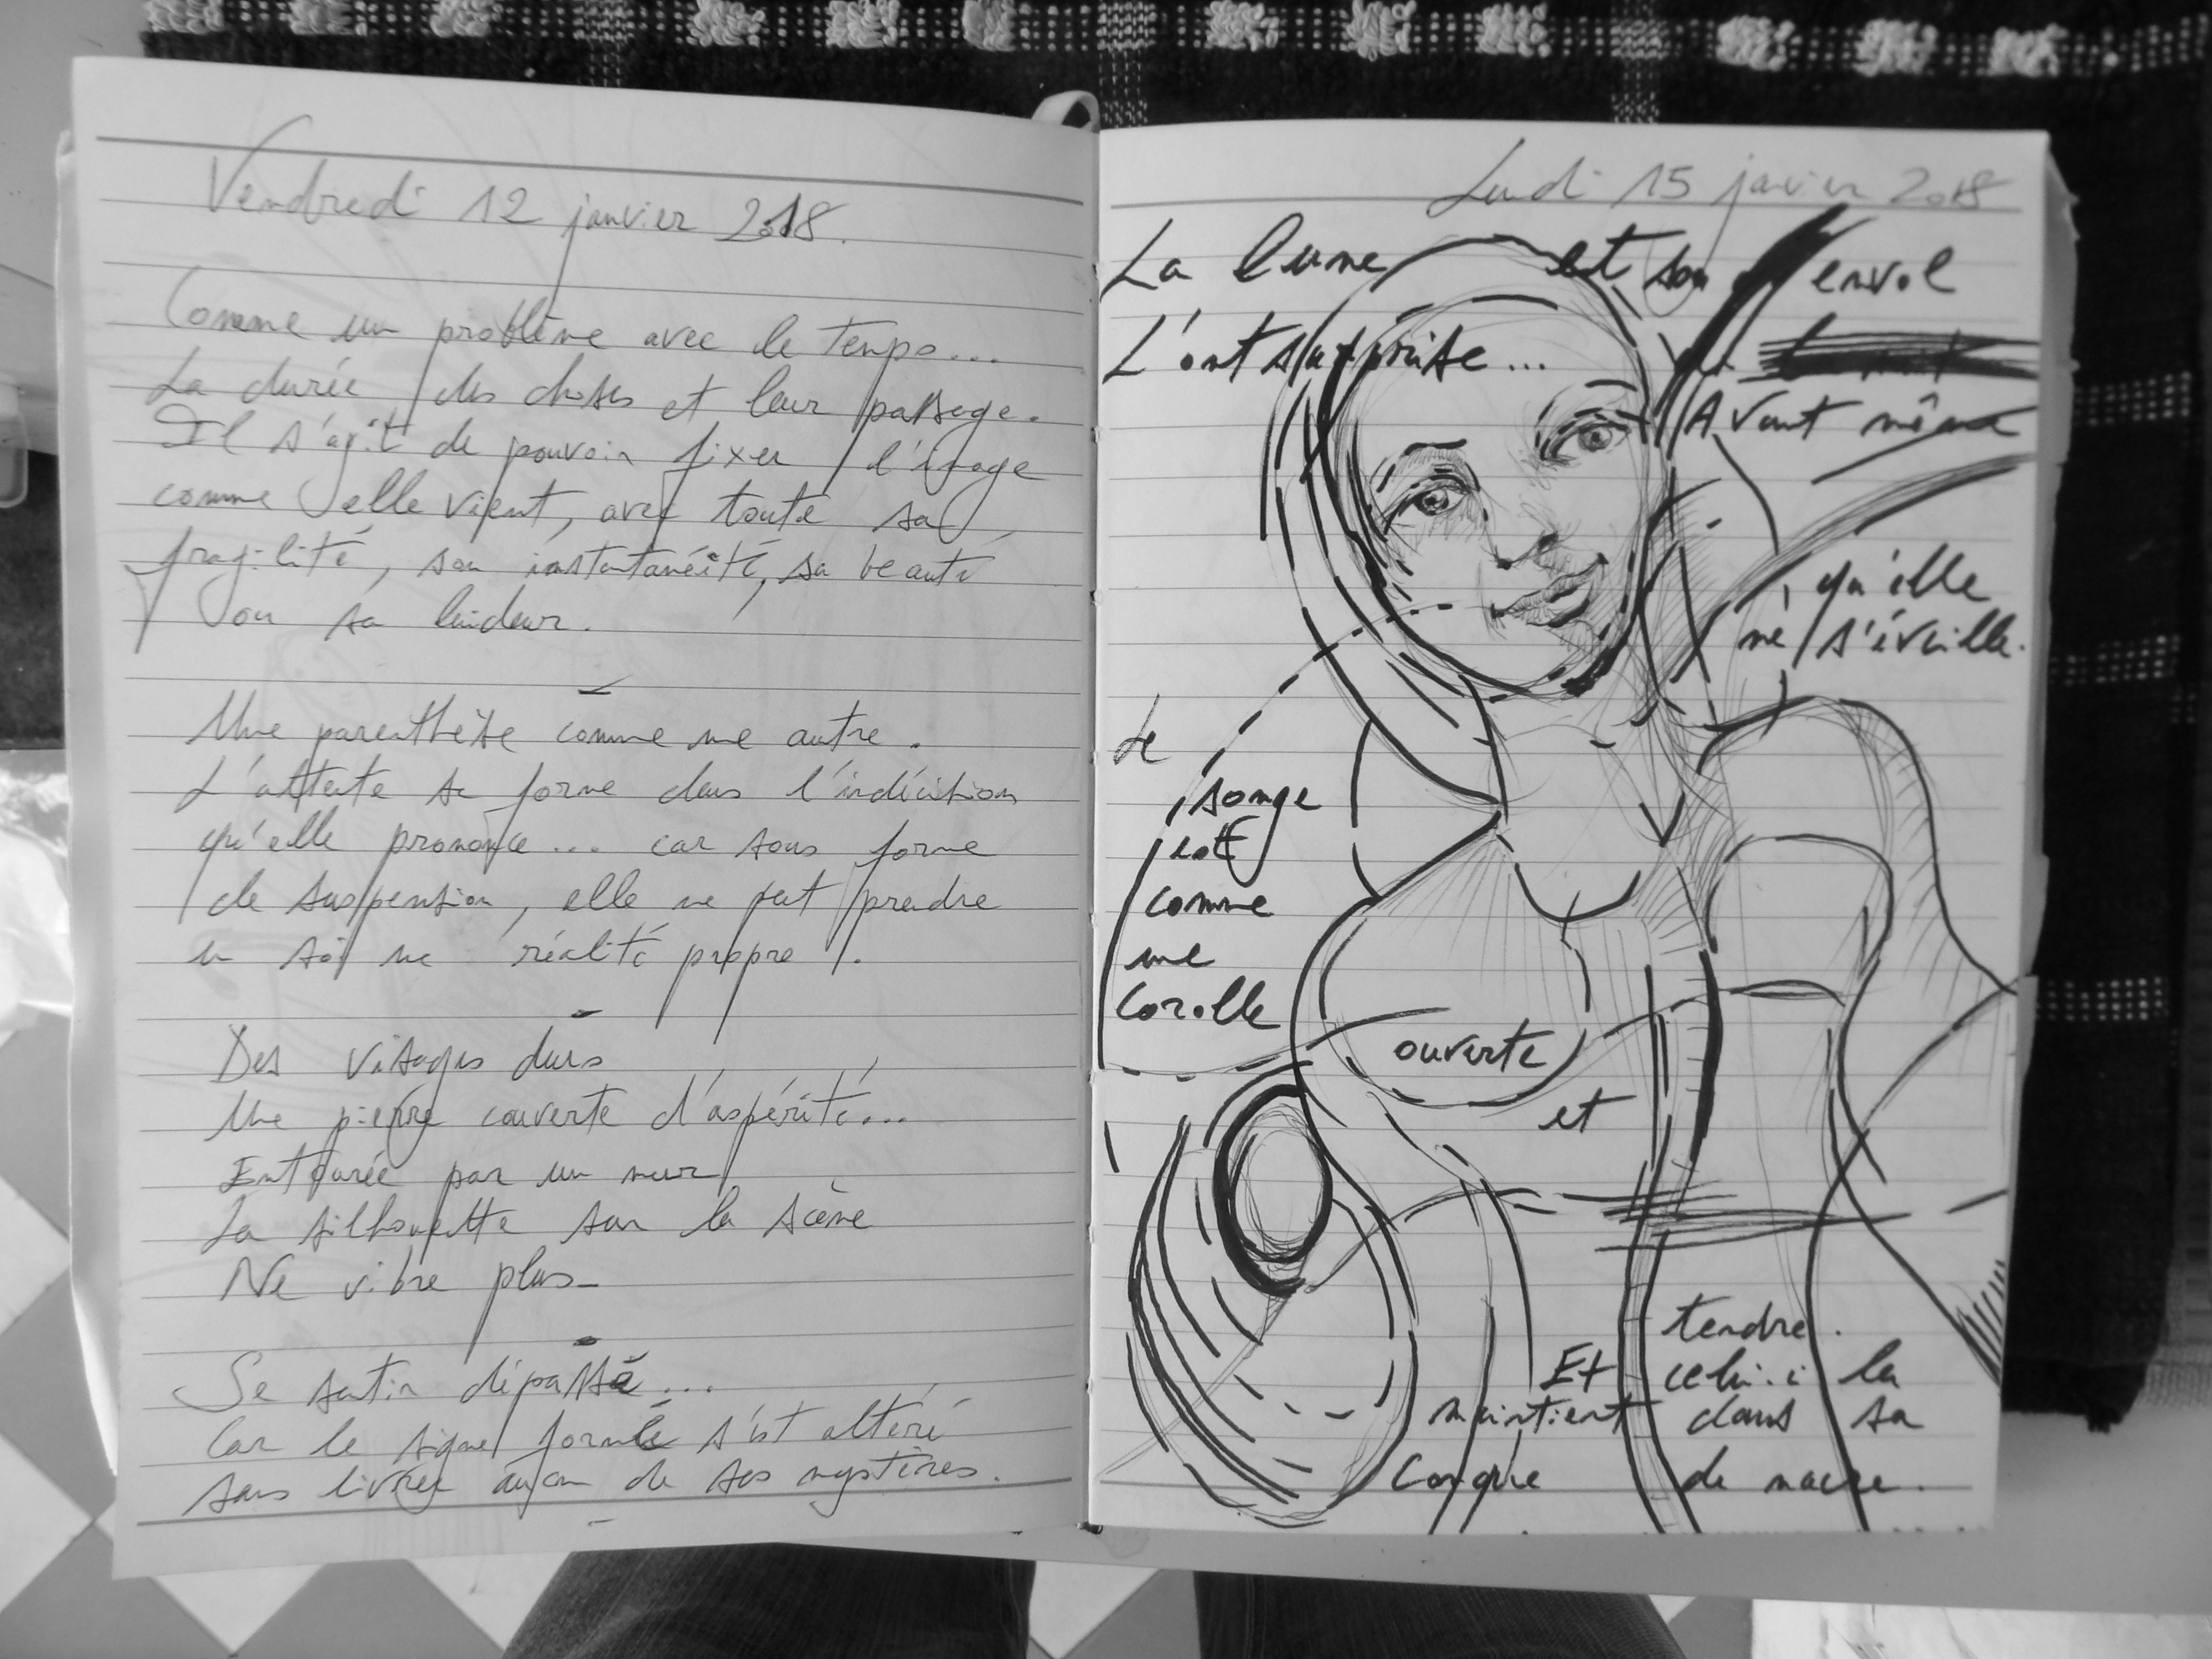 Vendredi 12 janvier 2018.
Comme un problème avec le tempo...
La durée des choses et leur passage.
Il s'agit de pouvoir fixer l'image
comme elle vient, avec toute sa
fragilité, son instantanéité, sa beauté
ou sa laideur.
Une parenthèse comme une autre.
L'attente se forme dans l'indécision
qu'elle prononce... car sous forme
de suspension, elle ne peut prendre
en soi une réalité propre.
Des visages durs
Une pierre couverte d'aspérité...
Entourée par un mur
La silhouette sur la scène
Ne vibre plus_
Se sentir dépassé...
Car le signe formulé s'est altéré
sans livrer aucun de ses mystères.
Lundi 15 janvier 2018
La lune et son envol
L'ont surprise...
Avant même
qu'elle
ne s'éveille.
Le
songe
est
comme
une
Corolle
ouverte
et
tendre.
Et celui-ci la
maintient dans sa
Conque de nacre.